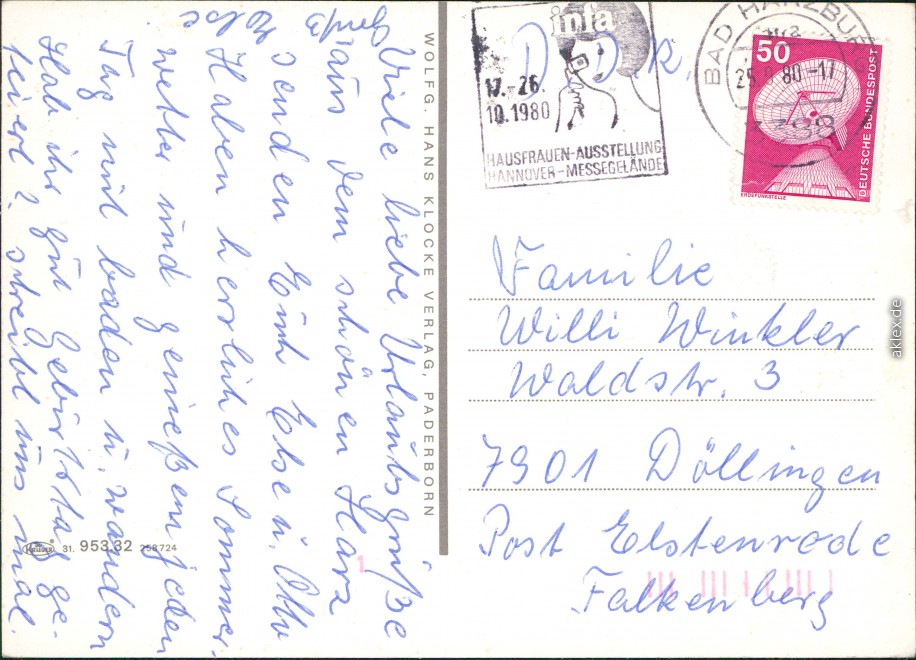 Viele liebe Urlaubsgrüße
aus dem schönen Harz
senden Euch Else u. Otto
Haben herrliches Sommer-
wetter und genießen jeden
Tag mit baden u. wandern
Hab ihr gut Geburtstag ge-
feiert? schreibt uns mal.
WOLFG. HANS KLOCKE VERLAG, PADERBORN
KRÜGER 31. 953.32 258724
infa
17.-26.
10.1980
HAUSFRAUEN-AUSSTELLUNG
HANNOVER-MESSEGELÄNDE
D.D.R.
BAD HARZBURG
80-11
50
DEUTSCHE BUNDESPOST
ERDEFUNKSTELLE
Familie
Willi Winkler
Waldstr. 3
7901 Döllingen
Post Elstenrode
Falkenberg
1
aklex.de